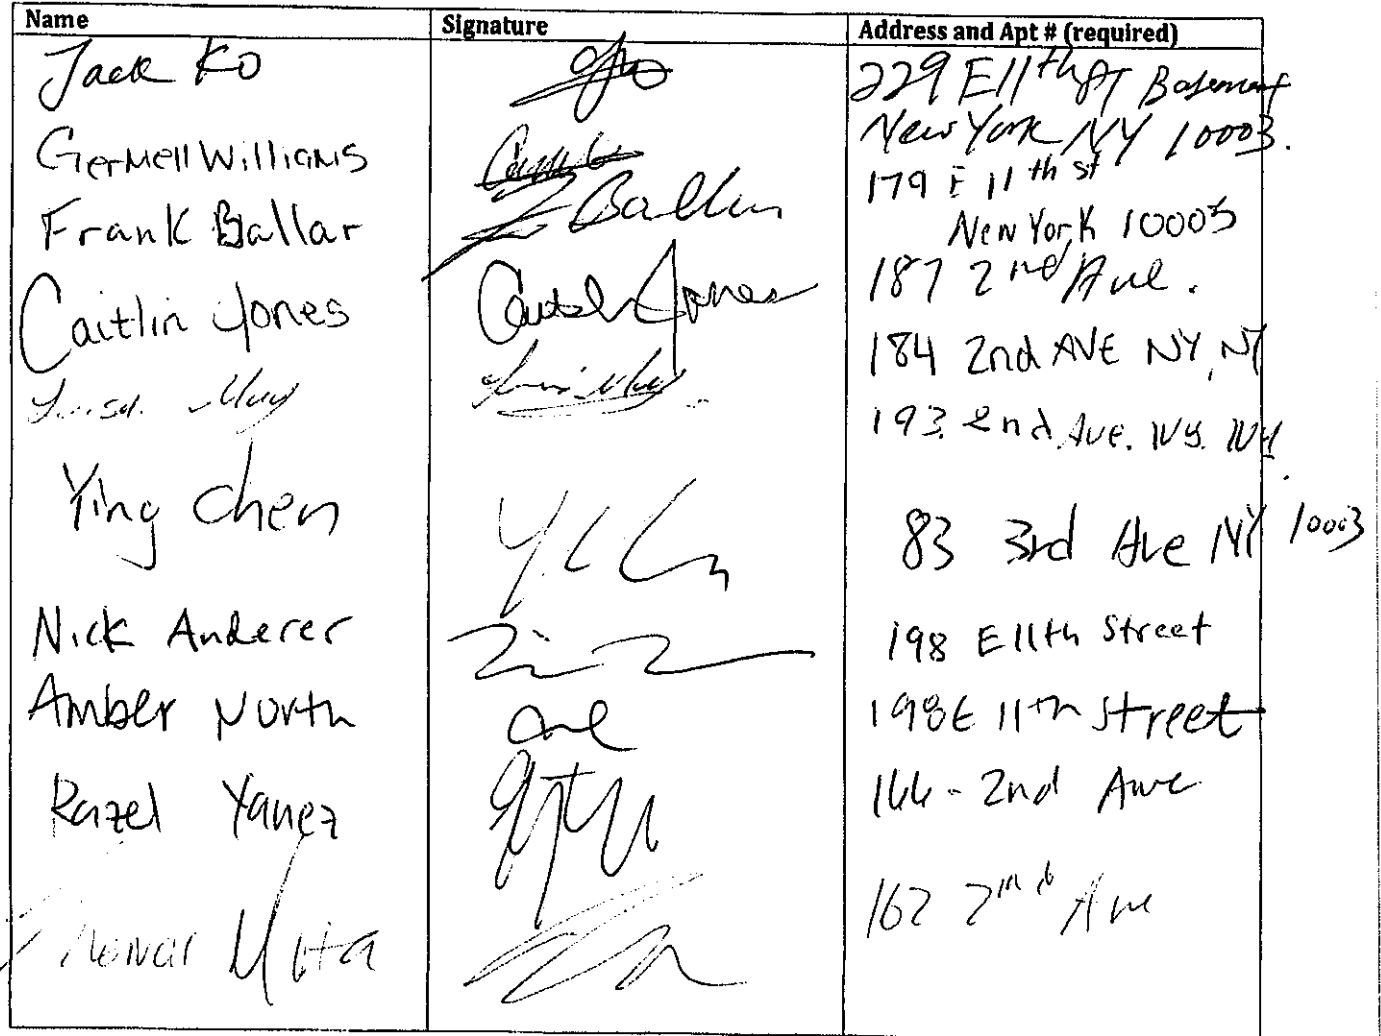 Name Signature Address and Apt # (required)
Jack Ko 229 E 11th ST Basement
New York NY 10003.
Germell Williams 179 E 11th st
New York 10003
Frank Ballar Ballar 187 2nd Ave.
Caitlin Jones Caitlin Jones 184 2nd AVE NY, NY
May 193 2nd Ave. NY. NY.
Ying Chen 83 3rd Ave NY 10003
Nick Anderer 198 E 11th Street
Amber North 198 E 11th Street
Razel Yanez 166 - 2nd Ave
162 2nd Ave